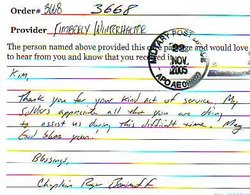 Order# 3668 3668
Provider KIMBERLY WINTERHALTER
The person named above provided this package and would love
to hear from you and know that you received it
MILITARY POST
22
NOV.
2005
APO AE
Kim,
Thank you for your kind act of service. My
Soldiers appreciate all that you are doing
to assist us during this difficult time. May
God bless you!
Blessings,
Chaplain Roger